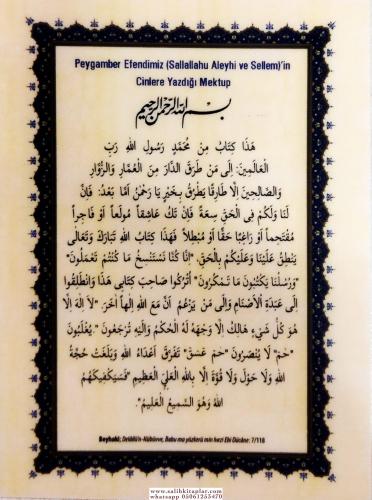 Peygamber Efendimiz (Sallallahu Aleyhi ve Sellem)'in
Cinlere Yazdığı Mektup
بسم الله الرحمن الرحيم
هَذَا كِتَابٌ مِنْ مُحَمَّدٍ رَسُولِ اللهِ رَبِّ
الْعَالَمِينَ: إِلَى مَنْ طَرَقَ الدَّارَ مِنَ الْعُمَّارِ وَالزُّوَّارِ
وَالصَّالِحِينَ إِلَّا طَارِقًا يَطْرُقُ بِخَيْرٍ يَا رَحْمٰنُ أَمَّا بَعْدُ: فَإِنَّ
لَنَا وَلَكُمْ فِى الْحَقِّ سِعَةً فَإِنْ تَكُ عَاشِقًا مُولَعًا أَوْ فَاجِراً
مُقْتَحِماً أَوْ رَاغِبًا حَقًّا أَوْ مُبْطِلاً فَهَذَا كِتَابُ اللهِ تَبَارَكَ وَتَعَالَى
يَنْطِقُ عَلَيْنَا وَعَلَيْكُمْ بِالْحَقِّ، "إِنَّا كُنَّا نَسْتَنْسِخُ مَا كُنْتُمْ تَعْمَلُونَ"
"وَرُسُلُنَا يَكْتُبُونَ مَا تَمْكُرُونَ" اُتْرُكُوا صَاحِبَ كِتَابِى هَذَا وَانْطَلِقُوا
إِلَى عَبَدَةِ الْأَصْنَامِ وَإِلَى مَنْ يَزْعُمُ أَنَّ مَعَ اللهِ إِلَهاً آخَرَ. "لَا اِلَهَ اِلَّا
هُوَ كُلُّ شَيْءٍ هَالِكٌ اِلَّا وَجْهَهُ لَهُ الْحُكْمُ وَاِلَيْهِ تُرْجَعُونَ" يُغْلَبُونَ
"حٰمٓ" لَا يُنْصَرُونَ "حٰمٓ عٓسٓقٓ" تَفَرَّقَ أَعْدَاءُ اللهِ وَبَلَغَتْ حُجَّةُ
اللهِ وَلَا حَوْلَ وَلَا قُوَّةَ اِلَّا بِاللهِ الْعَلِيِّ الْعَظِيمِ "فَسَيَكْفِيكَهُمُ
اللهُ وَهُوَ السَّمِيعُ الْعَلِيمُ".
Beyhakî; Delâilü'n-Nübüvve, Babu ma yüzkerü min hırzi Ebi Dücâne: 7/118
www.salihkitaplar.com
whatsapp 05061255470